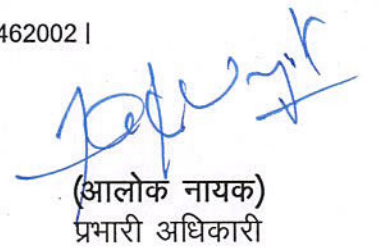 462002।
(आलोक नायक)
प्रभारी अधिकारी